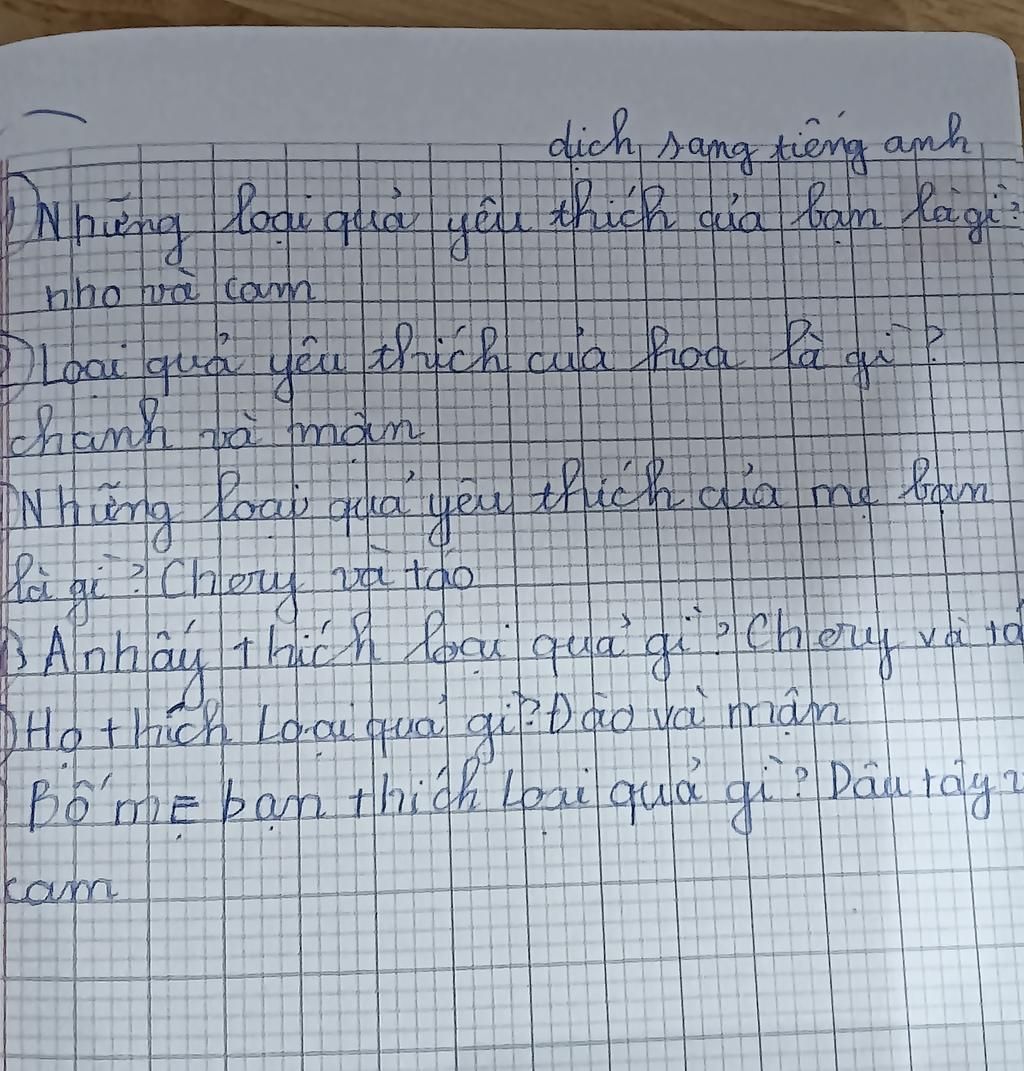 dịch sang tiếng anh
1) Những loại quả yêu thích của bạn là gì?
nho và cam
Loại quả yêu thích của hoa là gì?
chanh và mận
Những loại quả yêu thích của mẹ bạn
là gì? Chery và táo
3 Anh ấy thích loại quả gì? Chery và tá
Họ thích Loại quả gì? Đào và mận
Bố mẹ bạn thích loại quả gì? Dâu tây
cam